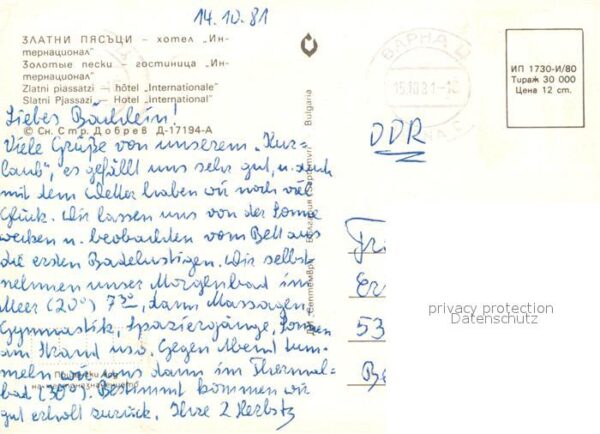 14.10.81
ЗЛАТНИ ПЯСЪЦИ – хотел „Ин-
тернационал"
Золотые пески – гостиница „Ин-
тернационал"
Zlatni piassatzi – hôtel „Internationale"
Slatni Pjassazi – Hotel „International"
© Сн. Стр. Добрев Д-17194-А
Liebes Bächlein!
Viele Grüße von unserem „Kur-
laub", es gefällt uns sehr gut, u. auch
mit dem Wetter haben wir noch viel
Glück. Wir lassen uns von der Sonne
wecken u. beobachten vom Bett aus
die ersten Badelustigen. Wir selbst
nehmen unser Morgenbad im
Meer (20°) 7³⁰, dann Massagen,
Gymnastik, Spaziergänge, Sonnen
am Strand usw. Gegen Abend tum-
meln wir uns dann im Thermal-
bad (30°). Bestimmt kommen wir
gut erholt zurück. Ihre 2 Herbsts
България
Bulgaria
ВАРНА
15.10.81
ИП 1730-И/80
Тираж 30 000
Цена 12 cm.
DDR
Fri
Er
53
Be
privacy protection
Datenschutz